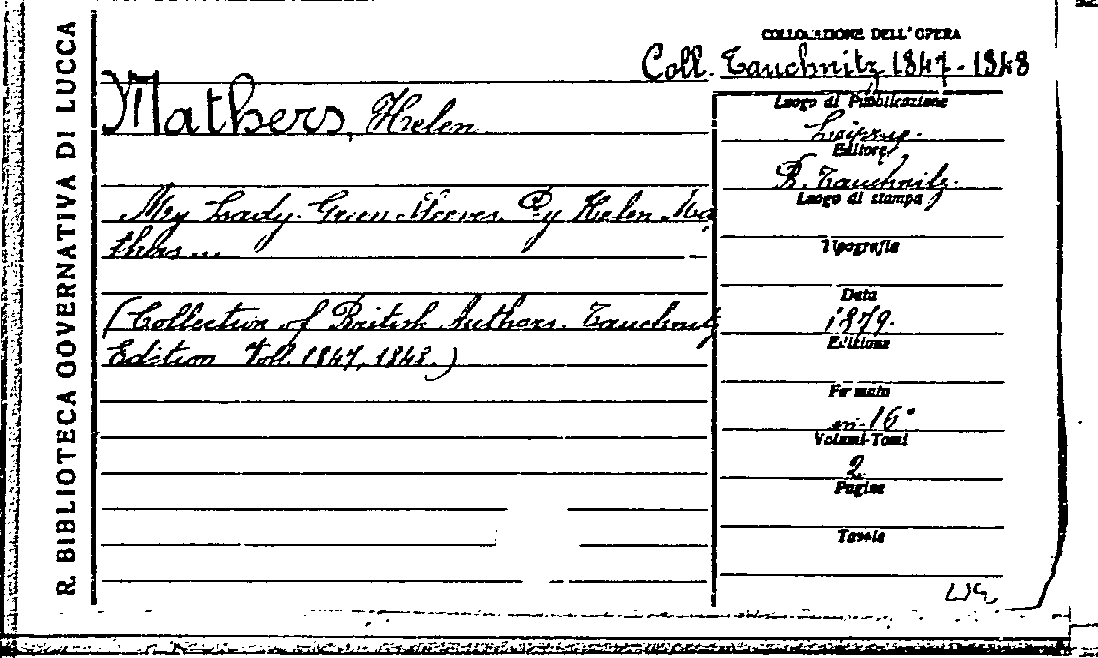 R. BIBLIOTECA GOVERNATIVA DI LUCCA
COLLOCAZIONE DELL'OPERA
Coll. Tauchnitz 1847-1848
Mathers, Helen
My Lady Green Sleeves. By Helen Ma
thers...
(Collection of British Authors. Tauchnitz
Edition Voll. 1847, 1848.)
Luogo di Pubblicazione
Leipzig.
Editore
B. Tauchnitz.
Luogo di stampa
Tipografia
Data
1879.
Edizione
Formato
in-16°
Volumi-Tomi
2
Pagine
Tavole